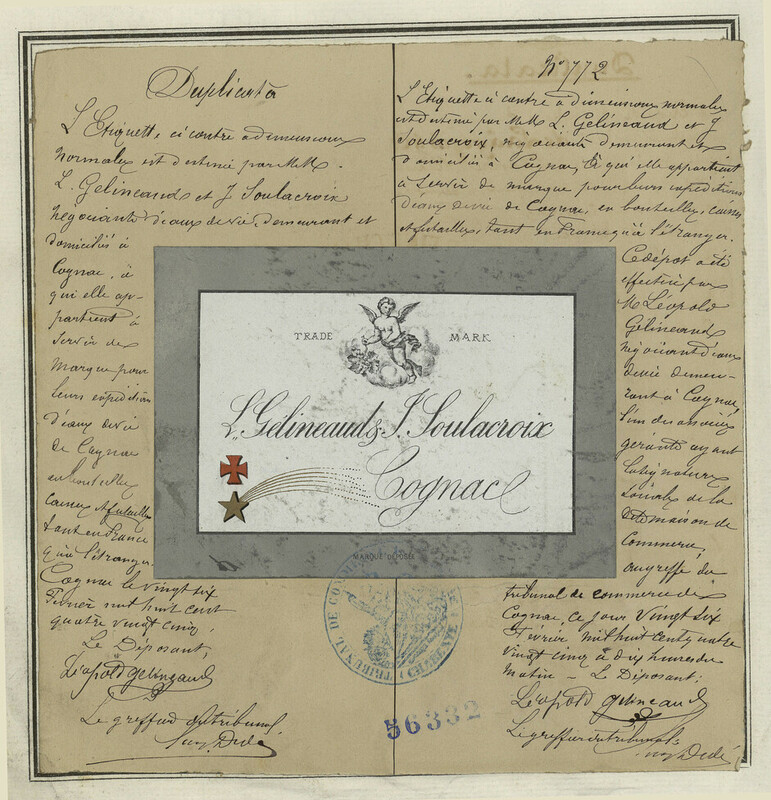 Duplicata
L'Etiquette ci contre a dimensions
normales est destinée par MM.
L. Gelineaud et J Soulacroix
negociants d'eaux de vie, demeurant et
domiciliés à
Cognac, à
qui elle ap-
partient à
servir de
marque pour
leurs expéditions
d'eaux de vie
de Cognac
en bouteilles
caisses et futailles
tant en France
qu'à l'étranger.
Cognac le vingt six
Février mil huit cent
quatre vingt cinq
Le Déposant,
Léopold Gelineaud
Le greffier du tribunal,
Dedé
N° 772
L'Etiquette ci contre a dimensions normales
est destinée par MM. L. Gelineaud et J
Soulacroix, négociants demeurant et
domiciliés à Cognac, à qui elle appartient
à servir de marque pour leurs expéditions
d'eaux de vie de Cognac, en bouteilles, caisses
et futailles, tant en France qu'à l'étranger.
Ce dépôt a été
effectué par
M Léopold
Gelineaud
négociant d'eaux
de vie demeu-
rant à Cognac,
l'un des associés
gerants ayant
la signature
sociale de la
dite maison de
Commerce,
au greffe du
tribunal de commerce de
Cognac, ce jour Vingt six
Février mil huit cent quatre
vingt cinq à dix heures du
matin — Le Déposant:
Léopold Gelineaud
Le greffier du tribunal
Dedé
TRADE MARK
L. Gélineaud & J. Soulacroix
Cognac
MARQUE DÉPOSÉE
TRIBUNAL DE COMMERCE
56332